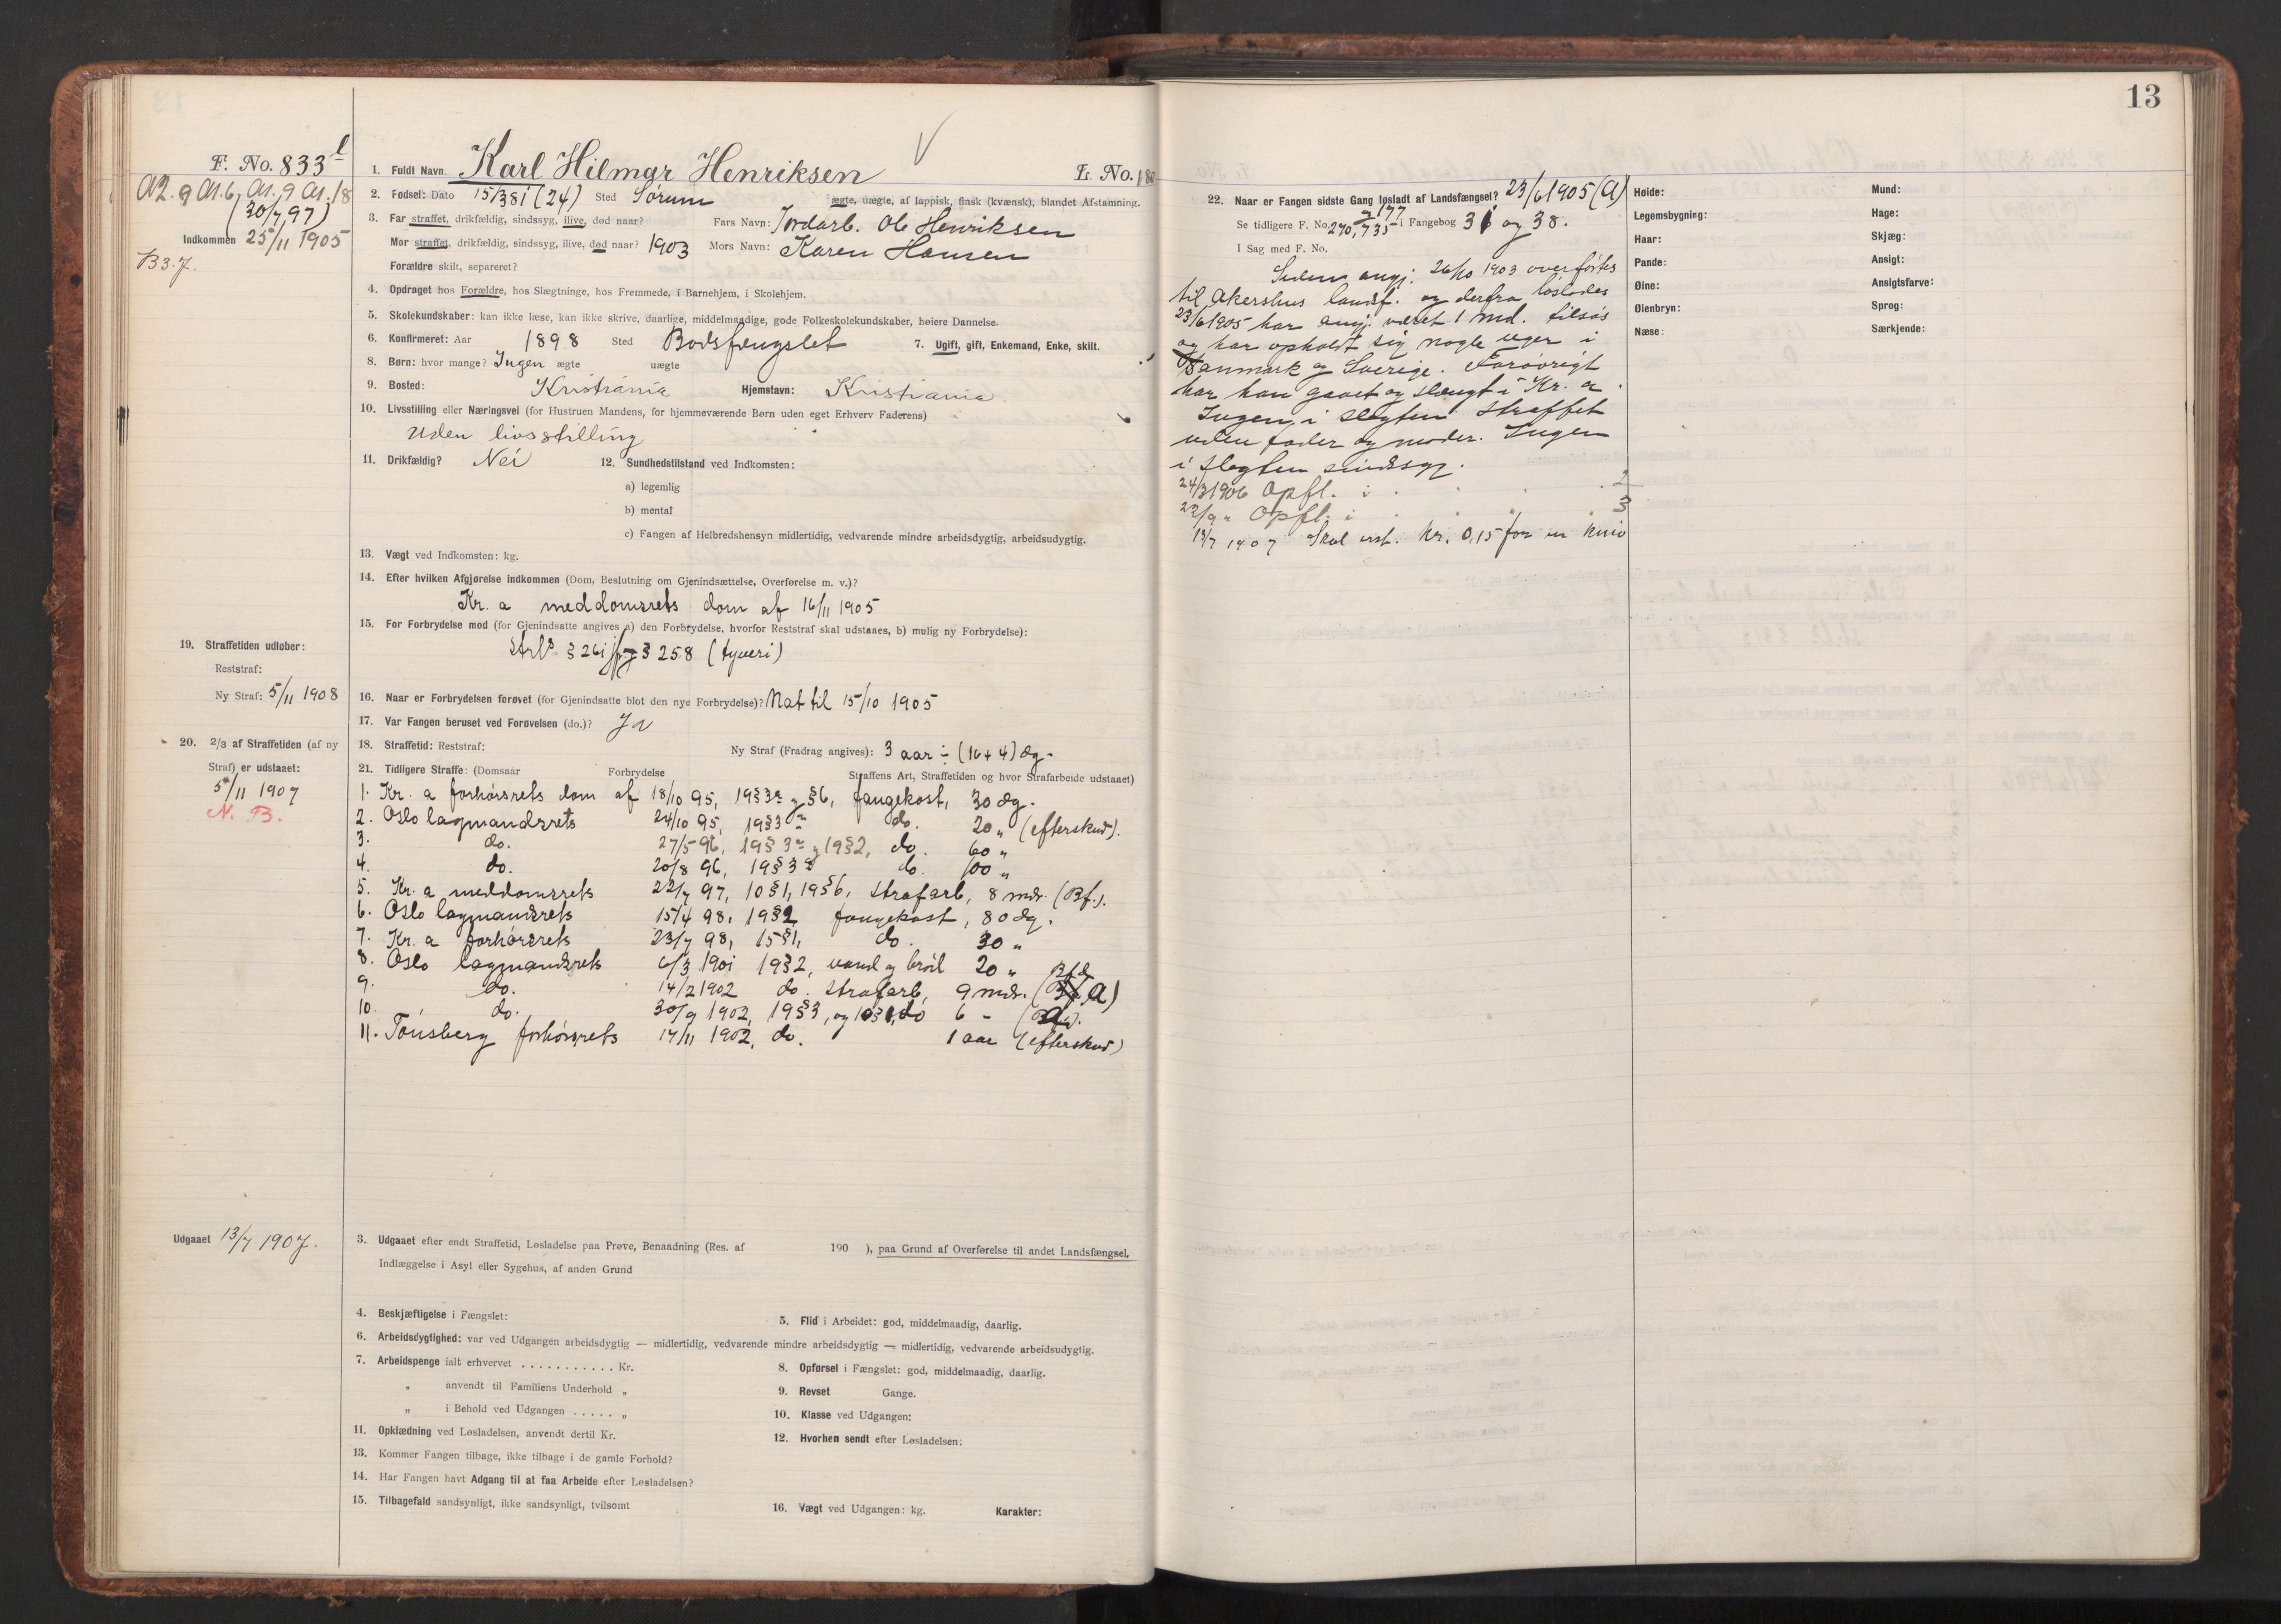 13
F. No. 833
A2. 9 A1. 6, A1. 9 A1. 18
(30/7 97)
Indkommen 25/11 1905
B3. 7.
19. Straffetiden udløber:
Reststraf:
Ny Straf: 5/11 1908
20. 2/3 af Straffetiden (af ny
Straf) er udstaaet:
5/11 1907
N. B.
Udgaaet 13/7 1907.
1. Fuldt Navn. Karl Hilmar Henriksen L. No.
2. Fødsel: Dato 15/3 81 (24) Sted Sørum ægte, uægte, af lappisk, finsk (kvænsk), blandet Afstamning.
3. Far straffet, drikfældig, sindssyg, ilive, død naar? Fars Navn: Jordarb. Ole Henriksen
Mor straffet, drikfældig, sindssyg, ilive, død naar? 1903 Mors Navn: Karen Hansen
Forældre skilt, separeret?
4. Opdraget hos Forældre, hos Slægtninge, hos Fremmede, i Barnehjem, i Skolehjem.
5. Skolekundskaber: kan ikke læse, kan ikke skrive, daarlige, middelmaadige, gode Folkeskolekundskaber, høiere Dannelse.
6. Konfirmeret: Aar 1898 Sted Bodsfængslet 7. Ugift, gift, Enkemand, Enke, skilt.
8. Børn: hvor mange? Ingen ægte uægte
9. Bosted: Kristiania Hjemstavn: Kristiania
10. Livsstilling eller Næringsvei (for Hustruen Mandens, for hjemmeværende Børn uden eget Erhverv Faderens)
Uden livsstilling
11. Drikfældig? Nei 12. Sundhedstilstand ved Indkomsten:
a) legemlig
b) mental
c) Fangen af Helbredshensyn midlertidig, vedvarende mindre arbeidsdygtig, arbeidsudygtig.
13. Vægt ved Indkomsten: kg.
14. Efter hvilken Afgjørelse indkommen (Dom, Beslutning om Gjenindsættelse, Overførelse m. v.)?
Kr. a meddomsrets dom af 16/11 1905
15. For Forbrydelse mod (for Gjenindsatte angives a) den Forbrydelse, hvorfor Reststraf skal udstaaes, b) mulig ny Forbrydelse):
Strl § 261 jfr § 258 (tyveri)
16. Naar er Forbrydelsen forøvet (for Gjenindsatte blot den nye Forbrydelse)? Nat til 15/10 1905
17. Var Fangen beruset ved Forøvelsen (do.)? Ja
18. Straffetid: Reststraf: Ny Straf (Fradrag angives): 3 aar ÷ (16+4) dg.
21. Tidligere Straffe: (Domsaar Forbrydelse Straffens Art, Straffetiden og hvor Strafarbeide udstaaet)
1. Kr. a forhørsrets dom af 18/10 95, 19§3a og §6, fangekost, 30 dg.
2. Oslo lagmandsrets 24/10 95, 19§3a do. 20 " (efterskud).
3. do. 27/5 96, 19§3a og 19§2, do. 60 "
4. do. 20/8 96, 19§3a do. 100 "
5. Kr. a meddomsrets 22/7 97, 10§1, 19§6, strafarb, 8 mdr. (Bf.).
6. Oslo lagmandsrets 15/4 98, 19§2 fangekost, 80 dg.
7. Kr. a forhørsrets 23/7 98, 15§1, do. 30 "
8. Oslo lagmandsrets 6/3 1901 19§2, vand og brød 20 "
9. do. 14/2 1902 do. strafarb, 9 mdr. (A)
10. do. 30/9 1902, 19§3, og do 6 -
11. Tønsberg forhørsrets 17/11 1902, do. 1 aar (efterskud)
3. Udgaaet efter endt Straffetid, Løsladelse paa Prøve, Benaadning (Res. af 190 ), paa Grund af Overførelse til andet Landsfængsel,
Indlæggelse i Asyl eller Sygehus, af anden Grund
4. Beskjæftigelse i Fængslet: 5. Flid i Arbeidet: god, middelmaadig, daarlig.
6. Arbeidsdygtighed: var ved Udgangen arbeidsdygtig — midlertidig, vedvarende mindre arbeidsdygtig — midlertidig, vedvarende arbeidsudygtig.
7. Arbeidspenge ialt erhvervet . . . . . . . . . . . Kr. 8. Opførsel i Fængslet: god, middelmaadig, daarlig.
" anvendt til Familiens Underhold " 9. Revset Gange.
" i Behold ved Udgangen . . . . . " 10. Klasse ved Udgangen:
11. Opklædning ved Løsladelsen, anvendt dertil Kr. 12. Hvorhen sendt efter Løsladelsen:
13. Kommer Fangen tilbage, ikke tilbage i de gamle Forhold?
14. Har Fangen havt Adgang til at faa Arbeide efter Løsladelsen?
15. Tilbagefald sandsynligt, ikke sandsynligt, tvilsomt 16. Vægt ved Udgangen: kg. Karakter:
22. Naar er Fangen sidste Gang løsladt af Landsfængsel? 23/6 1905 (A)
og 177
Se tidligere F. No. 270, 735 i Fangebog 36 og 38.
I Sag med F. No.
Siden angj. 26/10 1903 overførtes
til Akershus landsf. og derfra løslades
23/6 1905 har angj. været 1 md. tilsøs
og har opholdt sig nogle uger i
Danmark og Sverige. Forøvrigt
har han gaaet og slængt i Kr. a.
Ingen i slegten straffet
uden fader og moder. Ingen
i slegten sindssyg.
24/3 1906 Opfl. i 2
22/9 " Opfl. i 3
13/7 1907 Skal erst. Kr. 0,15 for en kniv
Høide:
Legemsbygning:
Haar:
Pande:
Øine:
Øienbryn:
Næse:
Mund:
Hage:
Skjæg:
Ansigt:
Ansigtsfarve:
Sprog:
Særkjende: